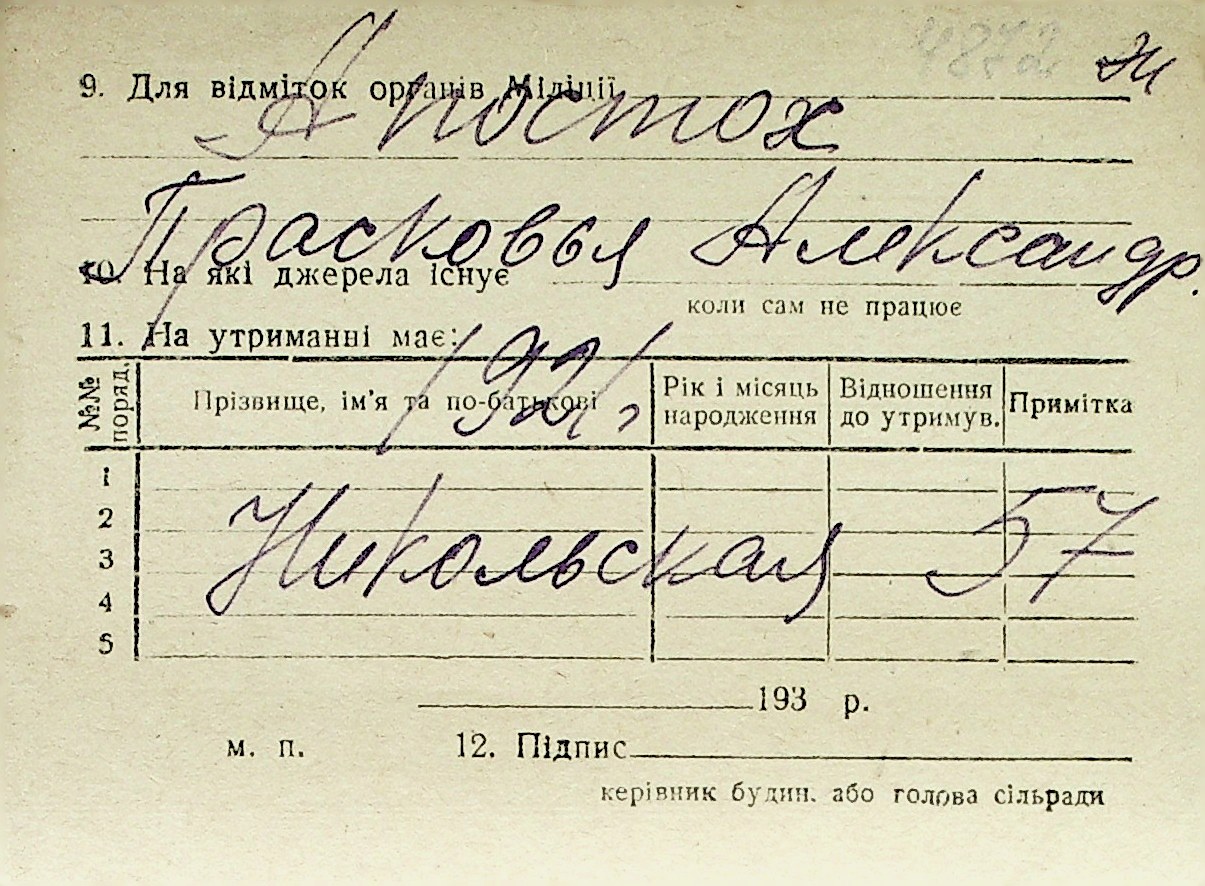 9. Для відміток органів Міліції
Апостох
Прасковья Александр.
10. На які джерела існує
коли сам не працює
11. На утриманні має:
1921,
№№ поряд. Прізвище, ім'я та по-батькові Рік і місяць народження Відношення до утримув. Примітка
1
2
Никольская 57
3
4
5
193 р.
м. п. 12. Підпис
керівник будин. або голова сільради